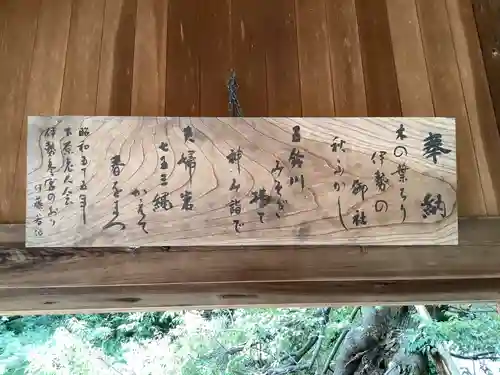 奉納
木の葉ちり
伊勢の御社
秋ふかし
五鈴川
みそぎ
神々詣で
夫婦岩
七五三縄
かえて
春をまつ
昭和五十五年
下原老人会
伊勢参宮のおり